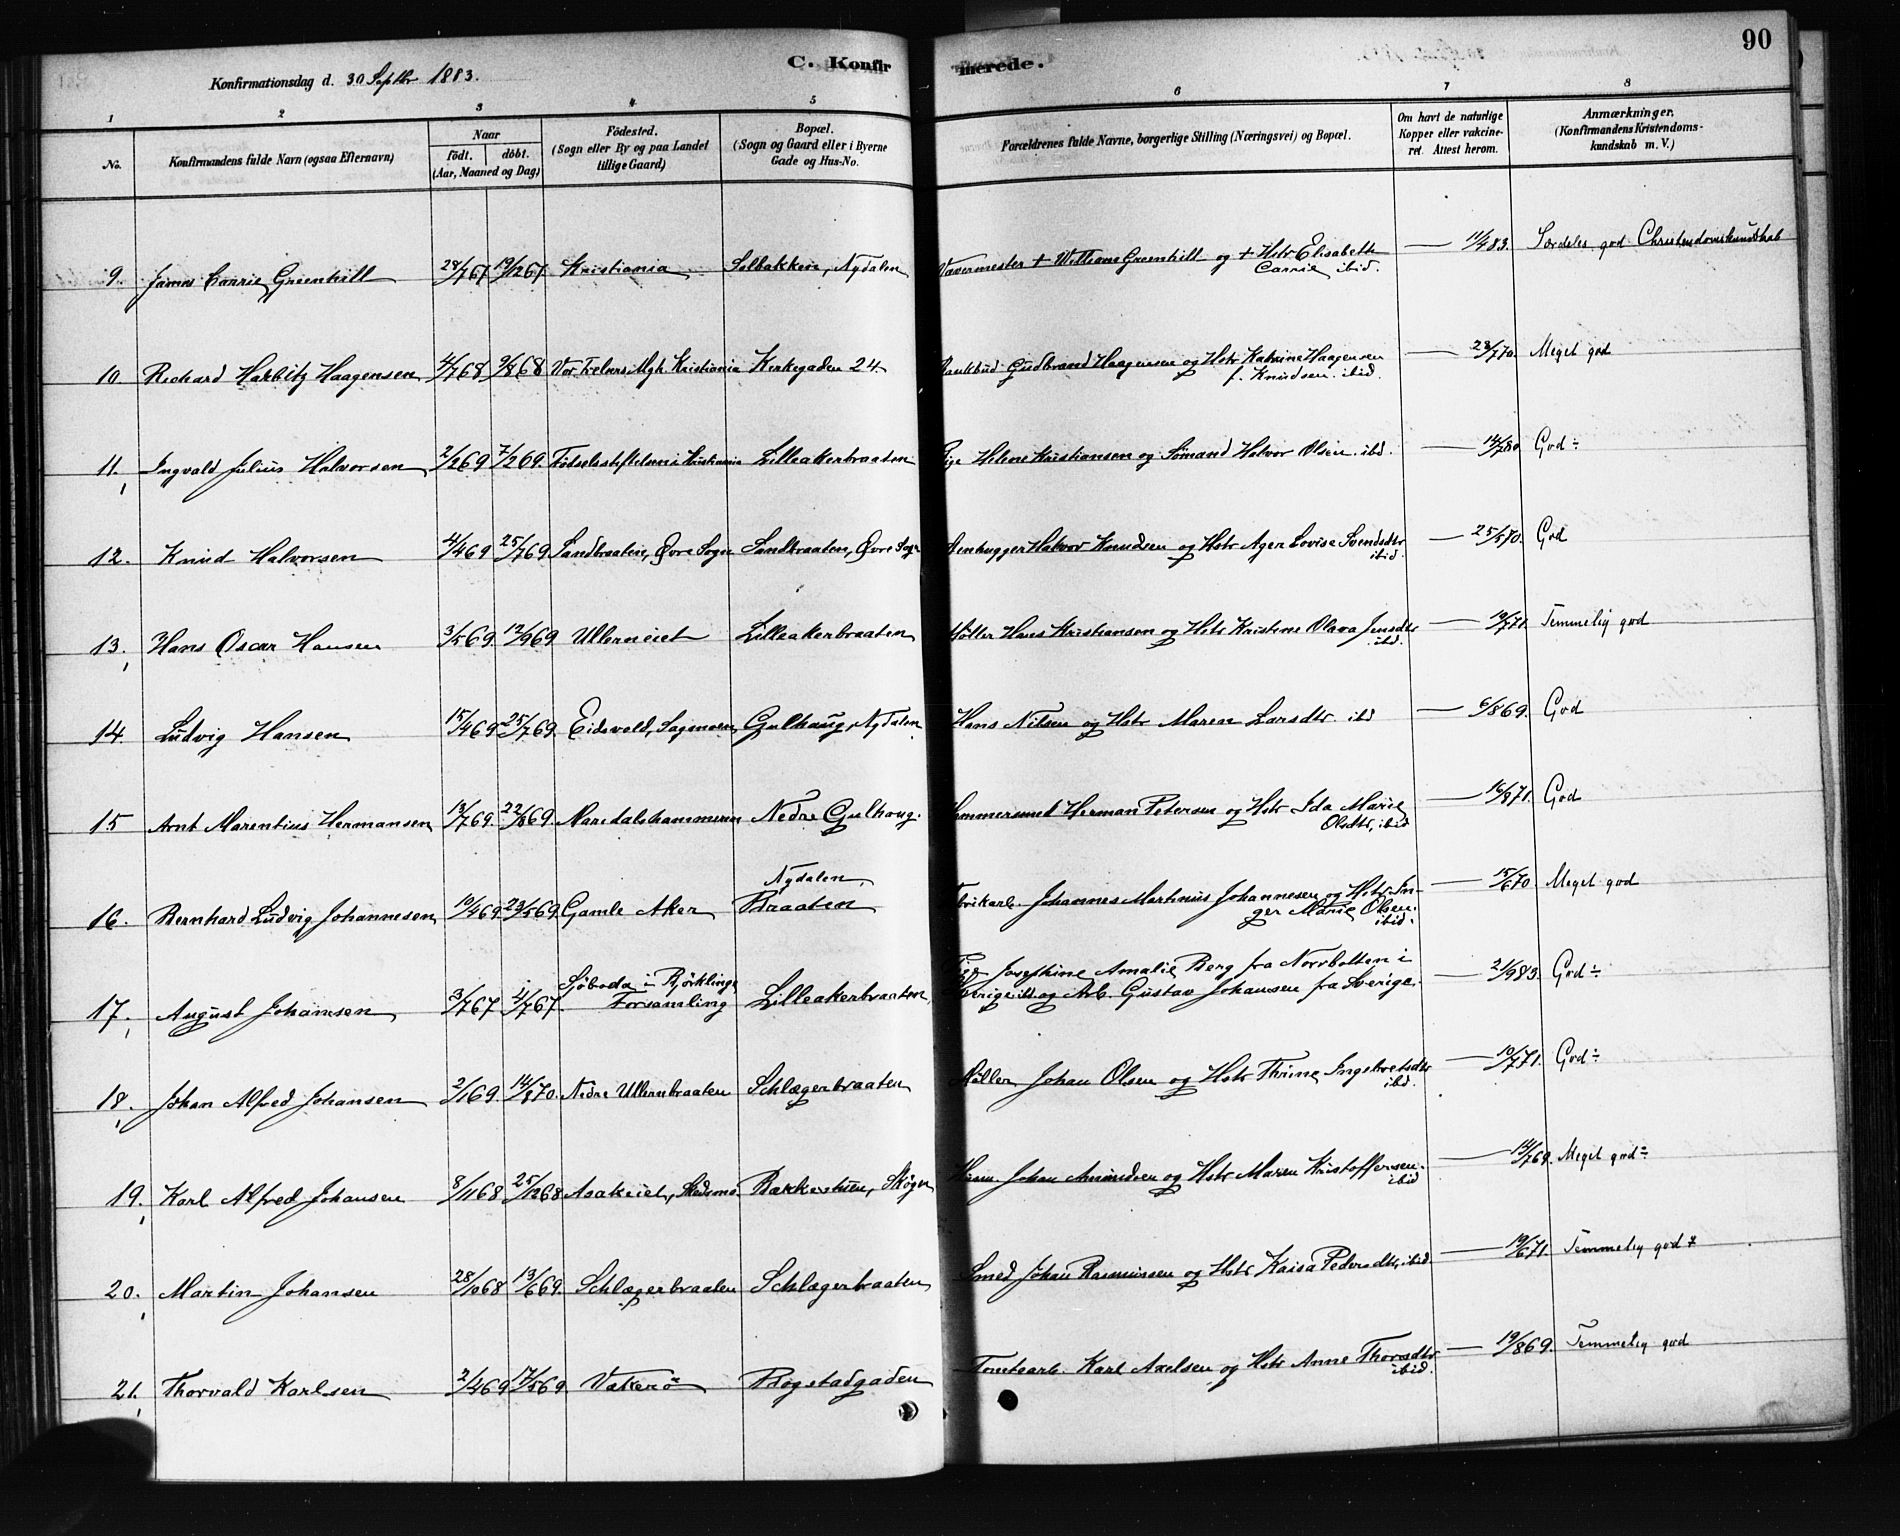 90
C. Konfirmerede.
Konfirmationsdag d. 30 Septbr 1883.
1 2 3 4 5 6 7 8
No. Konfirmandens fulde Navn (ogsaa Efternavn) Naar født. døbt. (Aar, Maaned og Dag) Födested. (Sogn eller By og paa Landet tillige Gaard) Bopæl. (Sogn og Gaard eller i Byerne Gade og Hus-No. Forældrenes fulde Navne, borgerlige Stilling (Næringsvei) og Bopæl. Om havt de naturlige Kopper eller vakcineret. Attest herom. Anmærkninger. (Konfirmandens Kristendomskundskab m. V.)
9. James Carrie Greenhill 28/7 67 19/12 67 Kristiania Solbakken, Nydalen Vævermester + William Greenhill og + Hstr Elisabeth Carrie ibid. — 11/4 83. Særdeles god Christendomskundskab
10 Richard Harbitz Haagensen 4/7 68 9/8 68 Vor Frelsers Mgh. Kristiania Kirkegaden 24 Bankbud Gudbrand Haagensen og Hstr Katrine Haagensen f. Knudsen ibid. — 28/7 70. Meget god
11. Ingvald Julius Halvorsen 2/2 69 7/2 69. Fødselsstiftelsen i Kristiania Lilleakerbraaten Pige Helene Kristiansen og Sömand Halvor Olsen ibd. — 14/7 80 God ÷
12. Knud Halvorsen 4/4 69 25/7 69. Sandbraaten, Øvre Sogn Sandbraaten, Øvre Sogn Stenhugger Halvor Knudsen og Hstr Ager Lovise Svendsdtr ibid. — 25/5 70. God
13. Hans Oscar Hansen 3/5 69. 12/9 69 Ullerneiet Lilleakerbraaten Møller Hans Kristiansen og Hstr Kristine Olava Jensdtr ibid. — 19/7 71 Temmelig god
14. Ludvig Hansen 15/4 69 25/7 69. Eidsvold, Sagmoen Gulhaug, Nydalen Hans Nilsen og Hstr Maren Larsdtr ibd — 6/8 69. God
15 Arnt Marentius Hermansen 13/7 69. 22/8 69. Maridalshammeren Nedre Gulhoug. Hammersmed Herman Petersen og Hstr Ida Marie Olsdtr, ibid — 16/9 71. God
16. Bernhard Ludvig Johannesen 10/4 69. 23/5 69. Gamle Aker Nydalen, Braaten Fabrikarb. Johannes Martinus Johannesen og Hstr Inger Marie Olsen. ibid. — 15/6 70. Meget god
17. August Johansen 3/7 67 4/7 67. Sjöboda i Björklinge Forsamling Lilleakerbraaten, Pige Josephine Amalie Berg fra Norrbotten i Sverige ibd og Arb. Gustav Johansen fra Sverige. — 21/9 83. God ÷
18. Johan Alfred Johansen 2/1 69. 14/8 70. Nedre Ullernbraaten Schlægerbraaten Møller Johan Olsen og Hstr Thrine Ingebretsdtr ibd. — 10/7 71. God ÷
19. Karl Alfred Johansen 8/11 68 25/12 68 Asakeiet, Skedsmo Bakkestuen, Skøyen Huusm. Johan Amundsen og Hstr Maren Kristoffersen. ibid — 14/7 69. Meget god ÷
20. Martin Johansen 28/10 68 13/6 69. Schlægerbraaten Schlægerbraaten Smed Johan Rasmussen og Hstr Kaisa Pedersdtr, ibid. — 19/6 71. Temmelig god +
21. Thorvald Karlsen 2/4 69 17/5 69. Vækerö Bogstadgaden Tomtearb. Karl Axelsen og Hstr Anne Thorsdtr ibid. — 19/8 69. Temmelig god